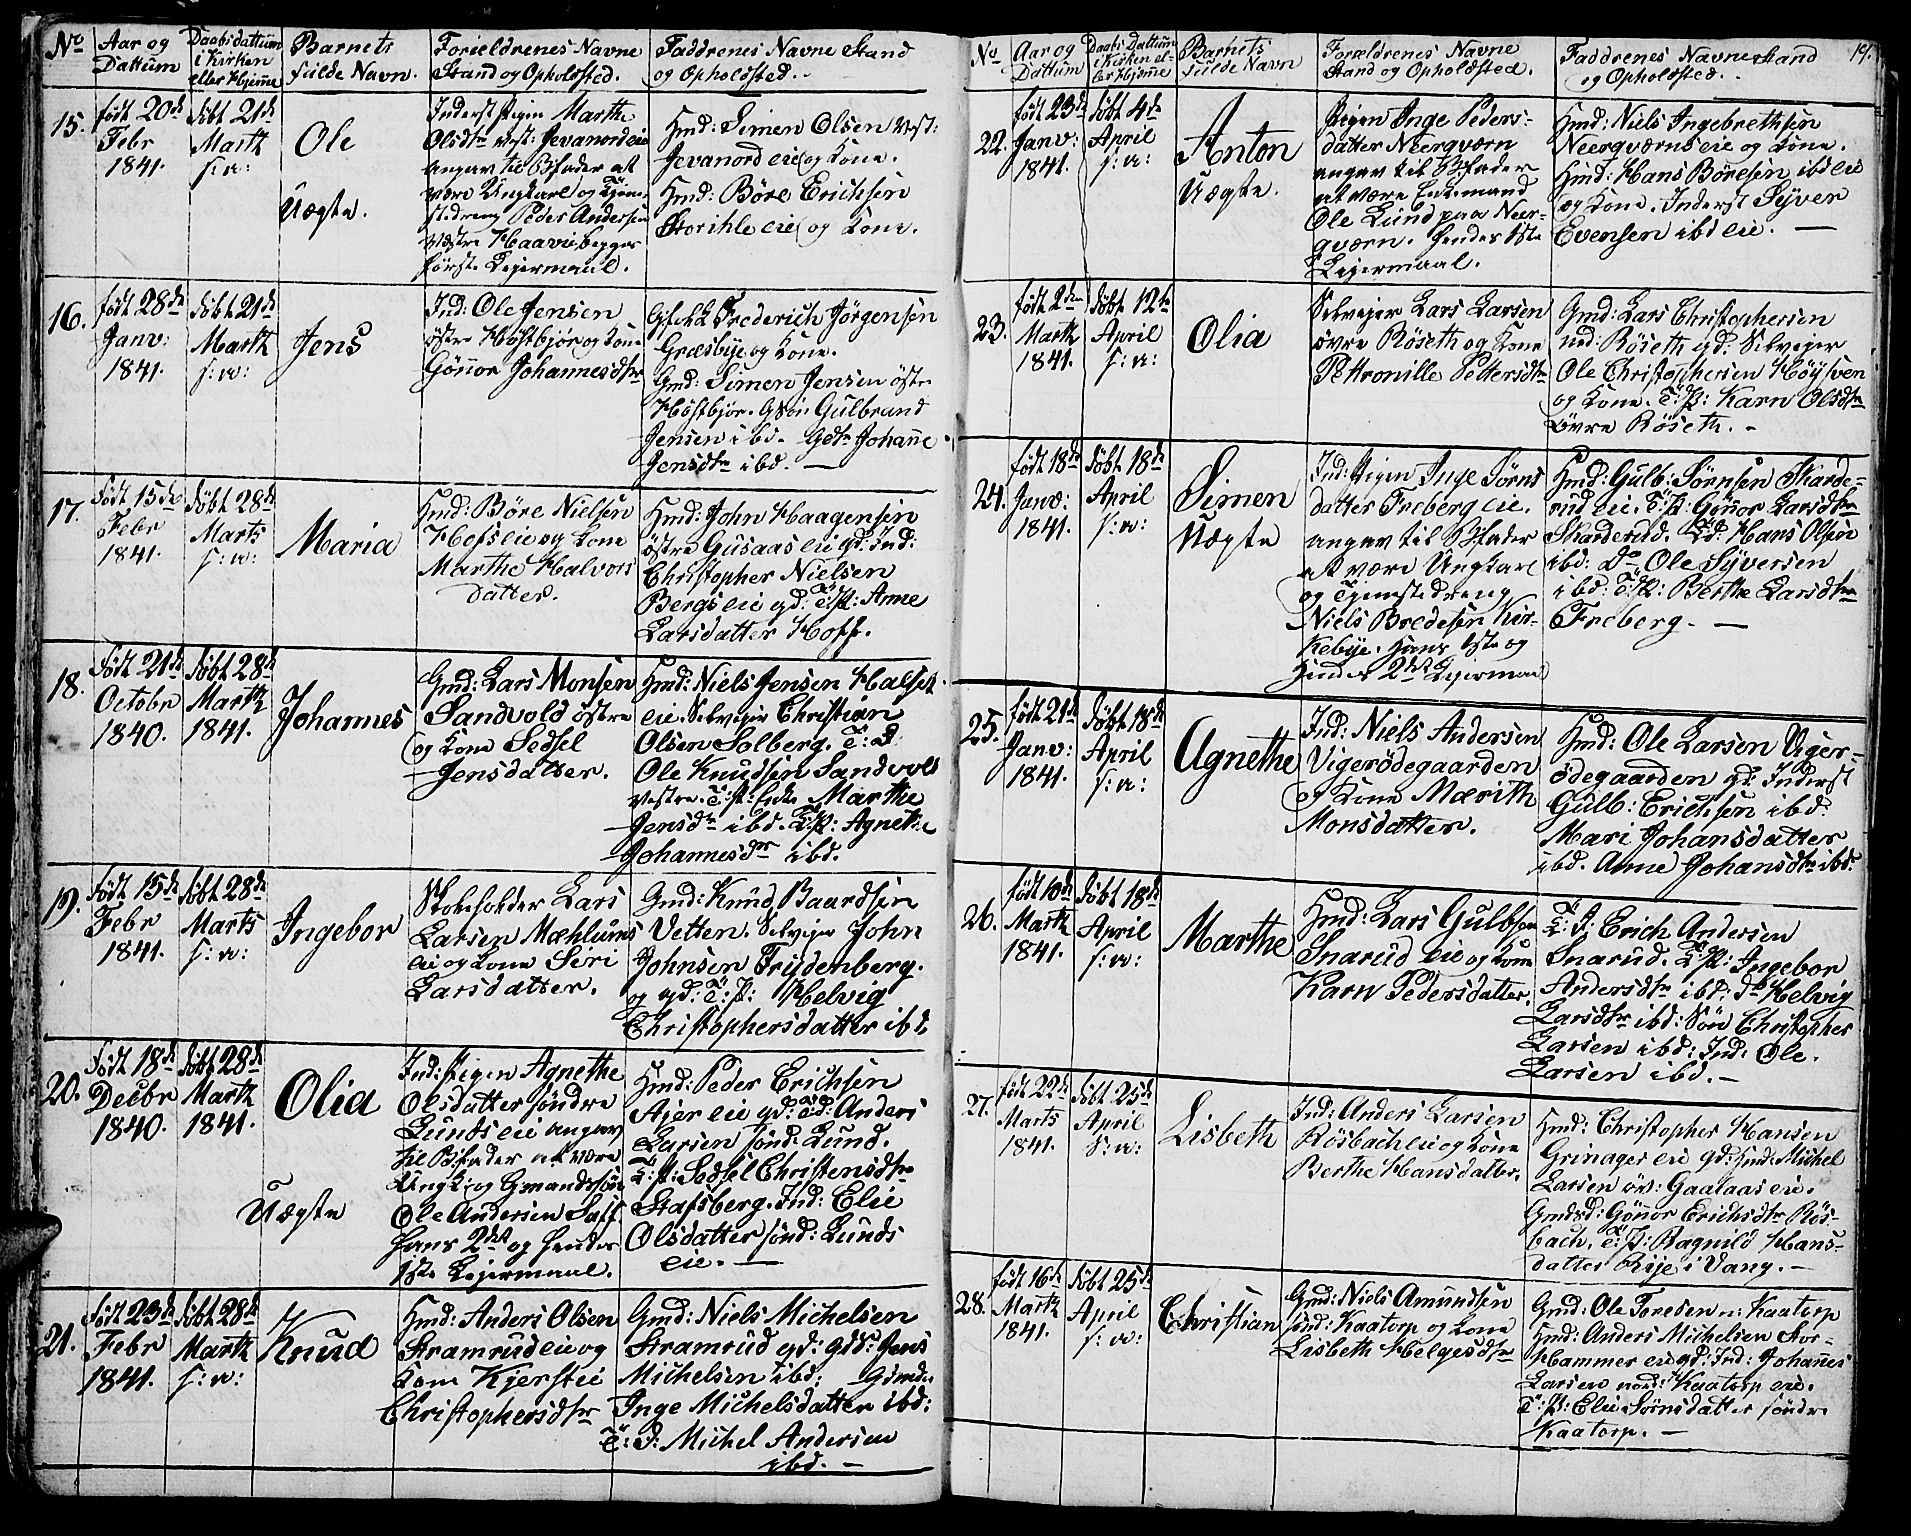 No
Aar og
Dattum
Daabsdattum
i Kirken
eller Hjeme
Barnets
fulde Navn.
Forældrenes Navne
Stand og Opholdsted.
Faddrenes Navne Stand
og Opholdsted.
15.
født 20de
Febr
1841.
döbt 21de
Martz
s: a:
Ole
Uægte.
Inderst Pigen Marthe
Olsdtr vest: Jevanord eie
angav til Bfader at
være Ungkarl og Tjene-
stedreng Peder Andersen
Vestre Haavie, begges
første Lejermaal.
Hmd: Simen Olsen vest:
Jevanord eie og Kone.
Hmd: Böre Erichsen
Storihle eie og Kone.
16.
født 28de
Janv:
1841.
döbt 21de
Martz
s: a:
Jens
Ind: Ole Jensen
östre Höstbjör og Kone
Gönor Johannesdtr
Frederich Jörgensen
Græsbye og Kone.
Gmd: Simen Jensen östre
Höstbjör. Gsön Gulbrand
Jensen ibd. Gdtr Johanne
Jensdtr ibd.
17.
født 15de
Febr
1841.
döbt 28de
Marts
s: a:
Maria
Hmd: Böre Nielsen
Hofs eie og Kone
Marthe Halvors
datter.
Hmd: John Haagensen
östre Gusaas eie gd: Ind:
Christopher Nielsen
Bergs eie gd: T: P: Anne
Larsdatter Hoff.
18.
Födt 21de
Octobr
1840.
döbt 28de
Martz
1841.
Johannes
Gmd: Lars Monsen
Sandvold östre
og Kone Sedsel
Jensdatter.
Hmd: Niels Jensen Halset
eie. Selveier Christian
Olsen Solberg. T: D:
Ole Knudsen Sandvold
vestre. Marthe
Jensdtr ibd. T: P: Agnethe
Johannesdtr ibd.
19.
Födt 15de
Febr
1841.
döbt 28de
Marts
s: a:
Ingebor
Skoleholder Lars
Larsen Mæhlums
eie og Kone Seri
Larsdatter.
Gmd: Knud Baardsen
Vetten. Selveier John
Johnsen Frydenberg.
og gd: T: P: Helvig
Christophersdatter ibd.
20.
Födt 18de
Decbr
1840.
döbt 28de
Martz
1841.
Olia
Uægte
Ind: Pigen Agnethe
Olsdatter söndre
Lunds eie angav
til Bfader at være
Ungk: og Gmandssön
Ole Andersen
hans 2det og hendes
1ste Lejermaal.
Hmd: Peder Erichsen
Ajer eie gd: T: D: Anders
Larsen sönd: Lund.
T: P: Sedsel Christensdtr
Stafsberg. Ind: Elie
Olsdatter sönd: Lunds
eie.
21.
Födt 23de
Febr
1841.
döbt 28de
Martz
s: a:
Knud
Hmd: Anders Olsen
Stramrud eie og
Kone Kjerstie
Christophersdtr
Gmd: Niels Michelsen
Stramrud gd: Jens
Michelsen ibd:
Inge Michelsdatter ibd:
T: D: Michel Andersen
ibd.
No
Aar og
Dattum
Daabs Dattum
i Kirken el-
ler Hjemme
Barnets
fulde Navn
Forældrenes Navne
Stand og Opholdsted.
Faddrenes Navne Stand
og Opholdsted.
19.
22.
født 23de
Janv:
1841.
döbt 4de
April
s: a:
Anton
Uægte.
Pigen Inge Peders-
datter Neerqværn
angav til Bfader
at være Enkemand
Ole Lund paa Neer-
qværn. hendes 1ste
Lejermaal.
Hmd: Niels Ingebrethsen
Neerqværns eie og Kone.
Hmd: Hans Böresen ibd eie
og Kone. Inderst Syver
Evensen ibd eie.
23.
født 2den
Martz
1841.
döbt 12te
April
s: a:
Olia
Selveger Lars Larsen
övre Röseth og Kone
Pettronille Pettersdtr
Gmd: Lars Christophersen
ned: Röseth gd: Selveiger
Ole Christophersen Höysven
og Kone. T: P: Karn Olsdtr
övre Röseth.
24.
født 18de
Janv:
1841.
döbt 18de
April
s: a:
Simen
Uægte
Ind: Pigen Inge Sörns
datter Freberg eie.
angav til Bfader
at være Ungkarl
og Tjenestedreng
Niels Bredesen Kir-
kebye. hans 1ste og
hendes 2det Lejermaal
Hmd: Gulb: Sörnsen Skarde-
rud eie. T: P: Gönor Larsdtr
Skarderud. T: D: Hans Olsen
ibd: Do Ole Syversen
ibd: T: P: Berthe Larsdtr
Freberg.
25.
født 21de
Janv:
1841.
döbt 18de
April
s: a:
Agnethe
Ind: Niels Andersen
Vigerödegaarden
og Kone Mærith
Monsdatter.
Hmd: Ole Larsen Viger-
ödegaarden gd: Inderst
Gulb: Erichsen ibd.
Mari Johansdatter
ibd. Anne Johansdtr ibd.
26.
født 10de
Martz
1841.
döbt 18de
April
s: a:
Marthe
Hmd: Lars Gulbsen
Snarud eie og Kone
Karn Pedersdatter.
T: D: Erich Andersen
Snarud. T: P: Ingebor
Andersdtr ibd: do Helvig
Larsdtr ibd: Sön Christopher
Larsen ibd: Ind: Ole
Larsen ibd.
27.
født 22de
Marts
1841.
döbt 25de
April
s: a:
Lisbeth
Ind: Anders Larsen
Rösbach eie og Kone
Berthe Hansdatter.
Hmd: Christopher Hansen
Grinager eie gd: Hmd: Michel
Larsen öv: Gaalaas eie.
Gmdsd: Gönor Erichsdtr Rös-
bach. T: P: Ragnild Hans-
datter Rije i Vang.
28.
født 16de
Martz
1841.
döbt 25de
April
s: a:
Christian
Gmd: Niels Amundsen
sönd: Kaatorp og Kone
Lisbeth Helgesdtr
Gmd: Ole Toresen n: Kaatorp
Hmd: Anders Michelsen Stor-
Hammer eie gd: Ind: Johannes
Larsen nord: Kaatorp eie.
T: P: Elie Sörnsdatter söndre
Kaatorp.